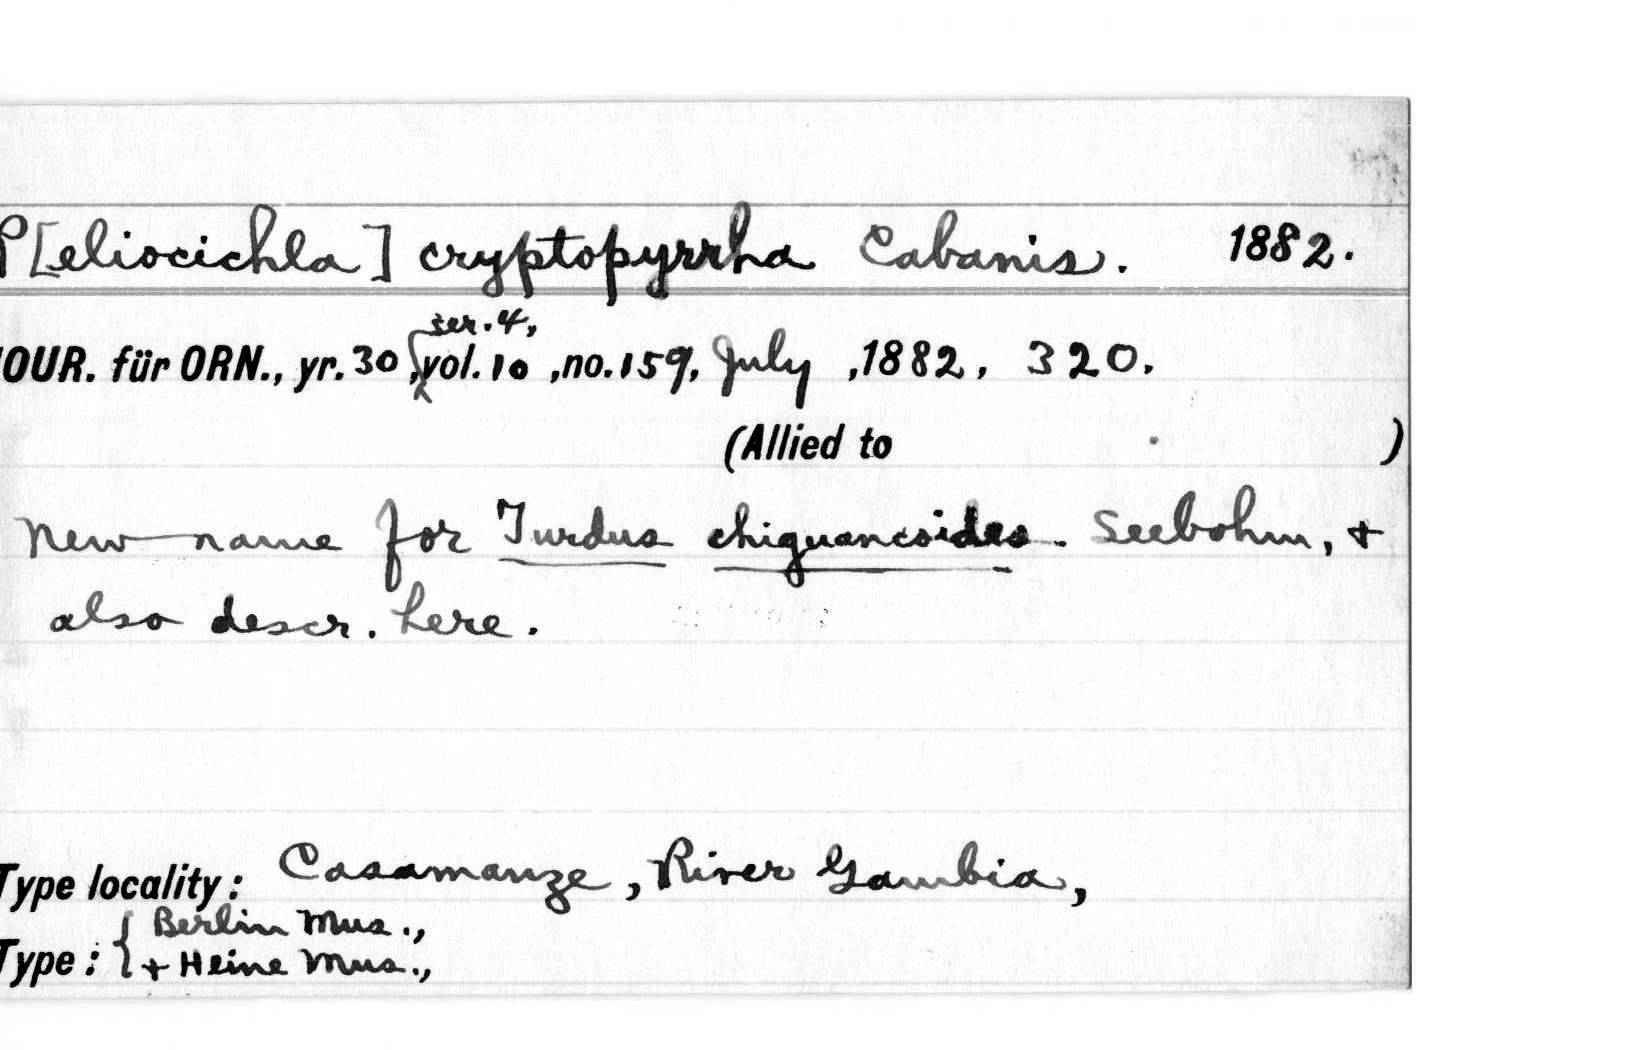 P[eliocichla] cryptopyrrha Cabanis. 1882.
ser. 4,
OUR. für ORN., yr. 30, vol. 10, no. 159, July, 1882, 320.
(Allied to )
New name for Turdus chiguancoides. Seebohm, +
also descr. here.
Type locality: Casamanze, River Gambia,
Berlin Mus.,
Type: { + Heine Mus.,